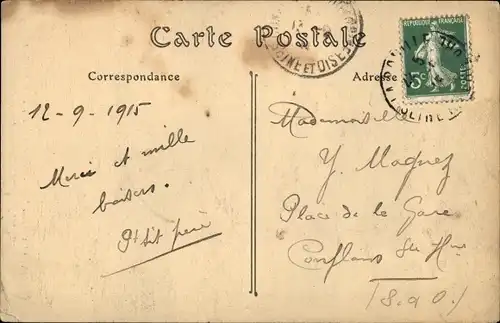 Carte Postale
Correspondance
Adresse
REPUBLIQUE FRANÇAISE
5c
SEINE ET OISE
12-9-1915
Merci et mille
baisers.
P'tit père
Mademoiselle
Y. Magnez
Place de la Gare
Conflans Ste Hne
(S. & O.)